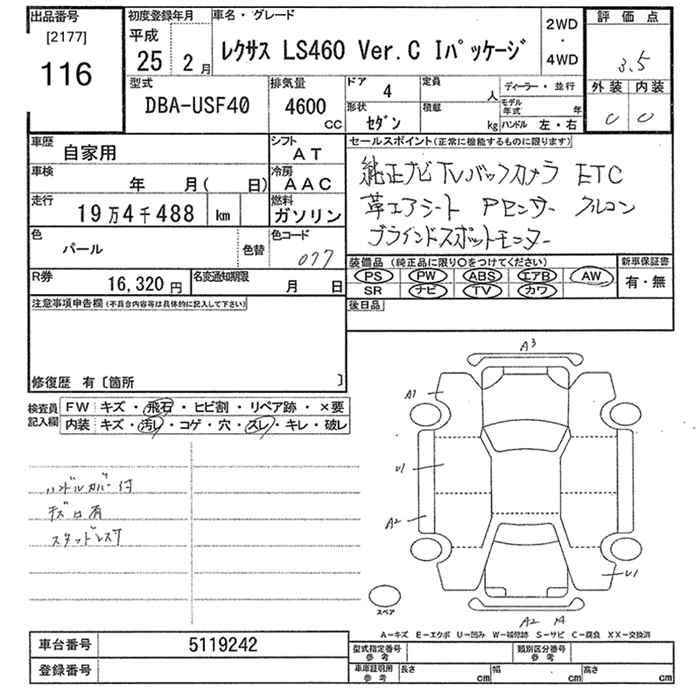 出品番号
[2177]
116
初度登録年月
平成
25 2 月
車名・グレード
レクサス LS460 Ver. C Iパッケージ
2WD
・
4WD
評価点
3.5
外装 内装
C C
型式
DBA-USF40
排気量
4600
CC
ドア
4
定員
人
形状
セダン
積載
kg
ディーラー・並行
モデル年式 年
ハンドル 左・右
車歴
自家用
シフト
AT
車検
年 月( 日)
冷房
AAC
走行
19万4千488 km
燃料
ガソリン
色
パール
色替
色コード
077
R券
16,320 円
名変通知期限
月 日
セールスポイント(正常に機能するものに限ります)
純正ナビ TV バックカメラ ETC
革エアシート Pセンサー
ブラインドスポットモニター
装備品(純正品に限り○をつけてください)
PS PW ABS エアB AW
SR ナビ TV カワ
新車保証書
有・無
後日品
注意事項申告欄(不具合内容等は具体的に記入して下さい)
修復歴 有〔箇所 〕
検査員記入欄
FW キズ・飛石・ヒビ割・リペア跡・×要
内装 キズ・汚レ・コゲ・穴・スレ・キレ・破レ
ハンドルカバー付
キズ凹有
スタッドレス
A3
A1
U1
A2
U1
A2
スペア
A－キズ E－エクボ U－凹み W－補修跡 S－サビ C－腐食 XX－交換済
車台番号
5119242
登録番号
型式指定番号
参考
類別区分番号
参考
車庫証明用
参考
長さ
cm
幅
cm
高さ
cm